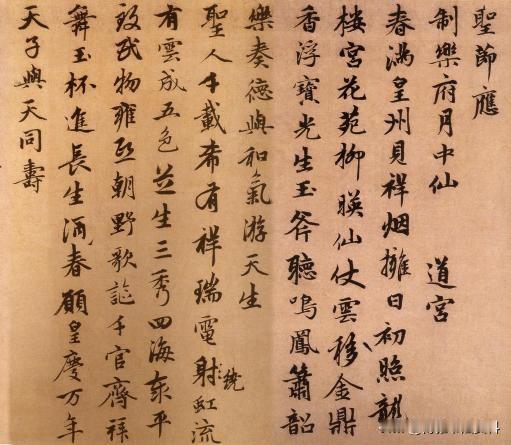 聖節應
制樂府月中仙 道宮
春滿皇州見祥烟擁日初照龍
樓宮花苑柳暎仙仗雲移金鼎
香浮寶光生玉斧聽鳴鳳簫韶
樂奏德與和氣游天生
聖人千載希有祥瑞電射虹流
繞
有雲成五色芝生三秀四海泰平
致民物雍熙朝野歌謳千官齊拜
舞玉杯進長生酒春願皇慶万年
天子與天同壽